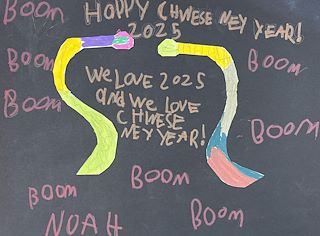 BOOM
HOPPY CHWESE NEY YEAR!
2025
BOOM
BOOM
BOOM
WE LOVE 2025
and WE LOVE
CHWESE
NEY YEAR!
BOOM
BOOM
BOOM
BOOM
NOAH